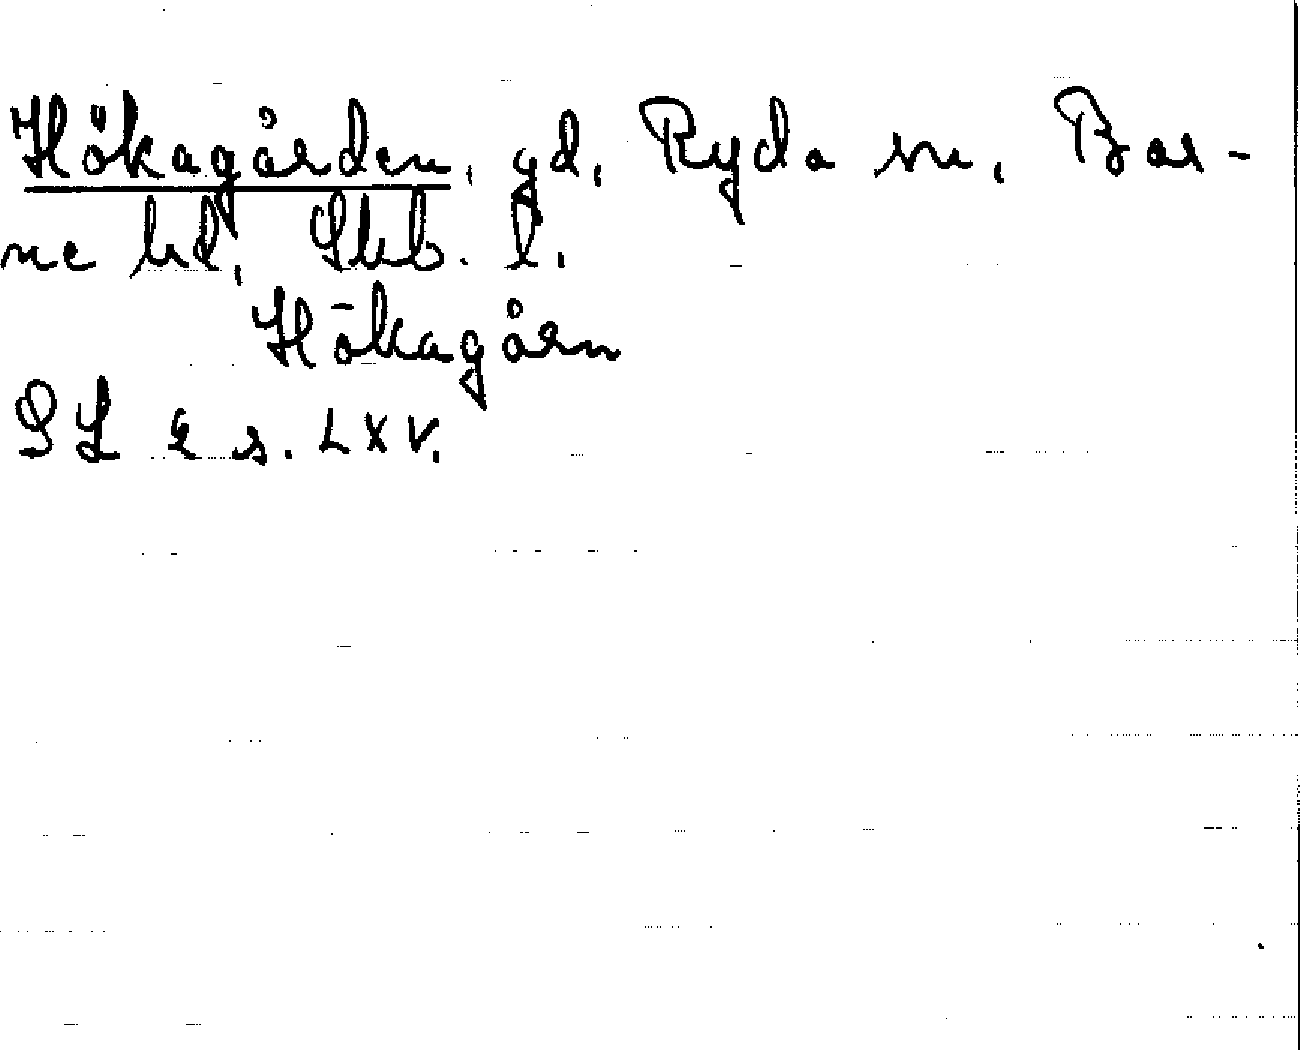 Hökagården, gd, Ryda sn, Bar-
ne hd, Skb. l.
Hökagårn
SL 2 s. LXV.